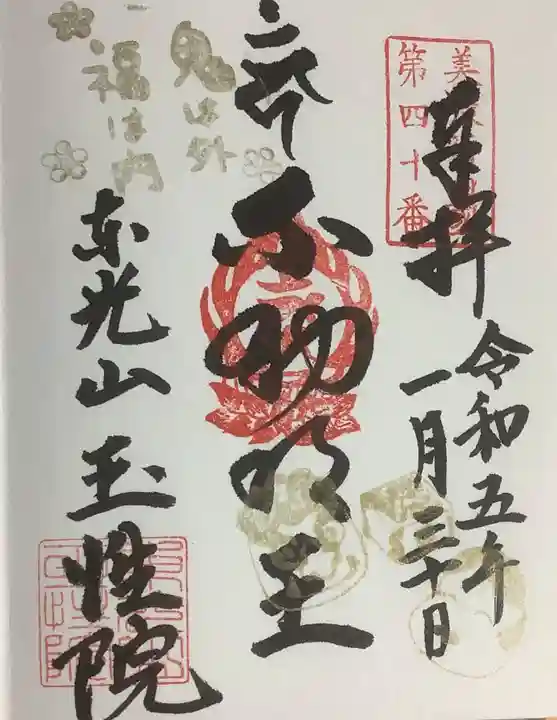 奉拝
令和五年
一月三十日
第四十番
不動明王
鬼は外
福は内
東光山
玉性院